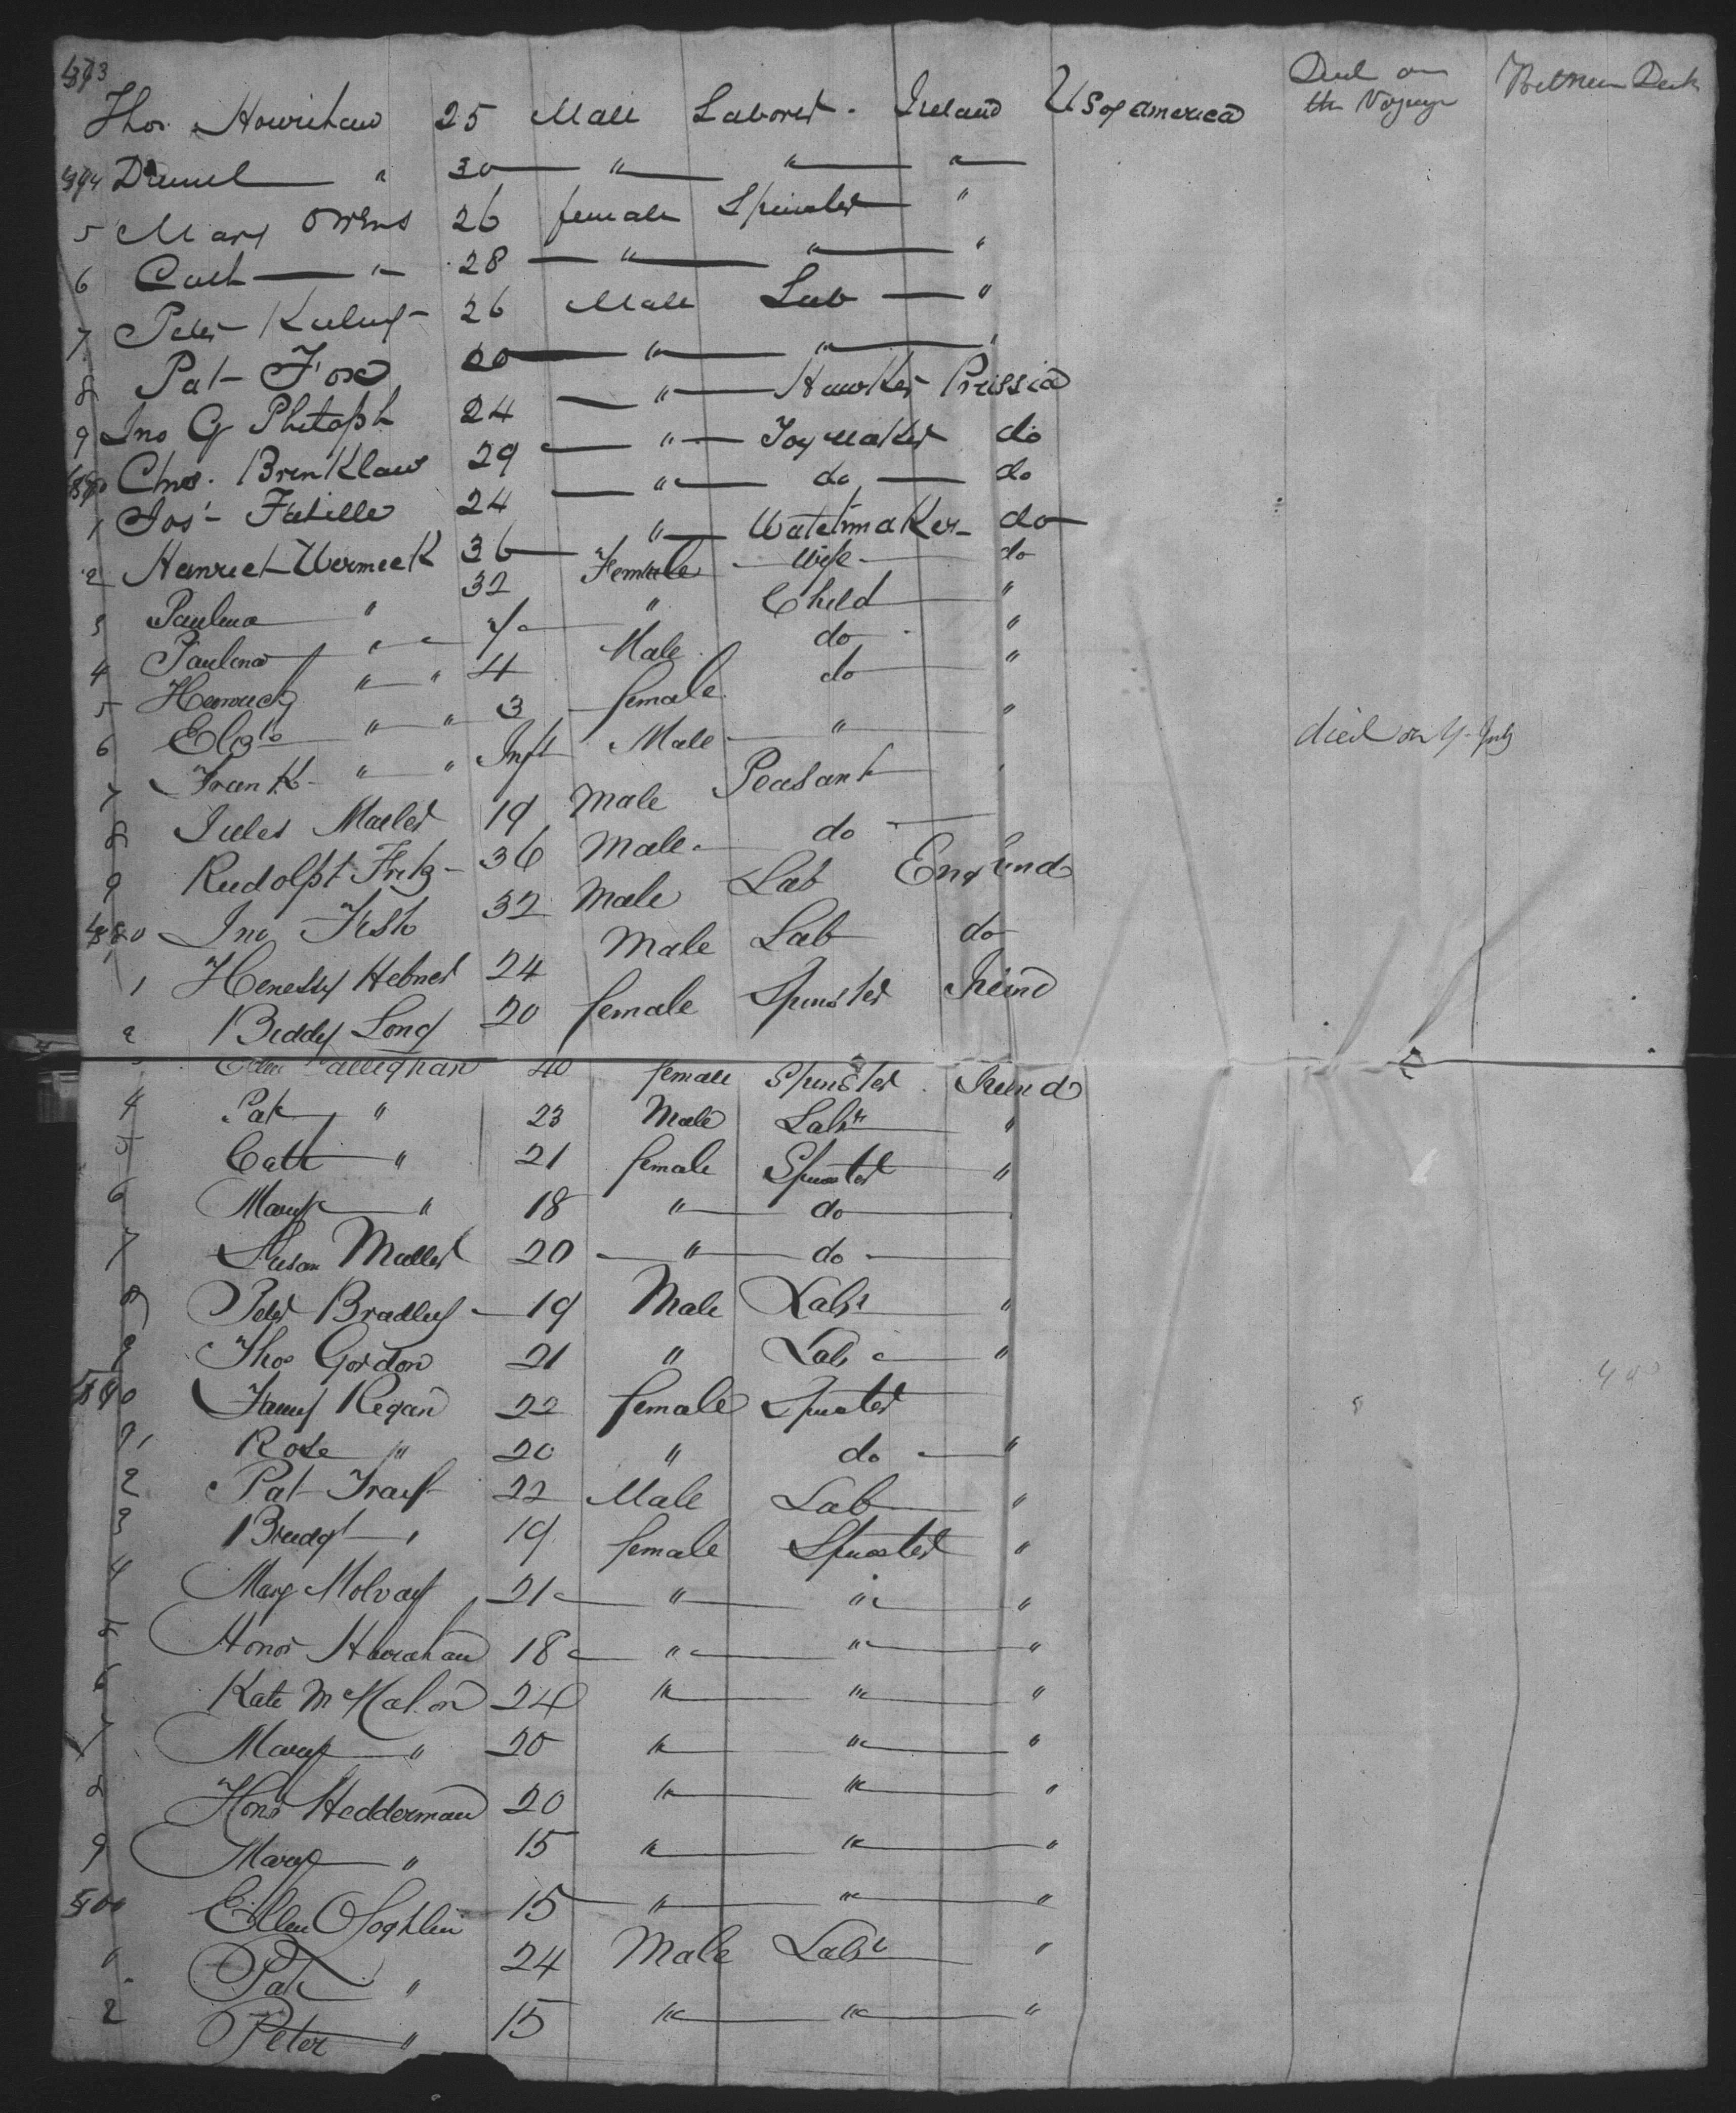 Thos Hourihan 25 Male Laborer Ireland US of America Died on the Voyage Between Deck
Daniel " 30 " " "
5 Mary Owens 26 female Spinster "
6 Cath " 28 " " "
7 Peter 26 Male Lab "
8 Pat Fox 20 " " "
9 Jno G 24 " Hawker Prussia
Chas. Brenklaw 29 " Toymaker do
1 Jos 24 " do do
2 36 " Watchmaker do
3 Paulina " 32 Female Wife do
4 Paulina " " 7 " Child "
5 " " 4 Male do "
6 Eliza " " 3 female do "
7 Frank " " Inft Male " " died on July
8 Jules 19 Male Peasant "
9 Rudolph Fritz 36 Male do
480 Jno 32 Male Lab England
1 Hebner 24 Male Lab do
2 Biddy Long 20 female Spinster Irelnd
Callighan 40 female Spinster Irelnd
4 Pat " 23 Male Labr "
5 Cath " 21 female Spinster "
6 Mary " 18 " do
7 Susan 20 " do
8 Peter Bradley 19 Male Labr "
9 Thos Gordon 21 " Lab "
490 Fanny Regan 22 female Spinster
1 Rose " 20 " do "
2 Pat 22 Male Lab "
3 Bridgt " 19 female Spinster "
4 Mary 21 " " "
5 Honor 18 " " "
6 Kate McMahon 24 " " "
7 Mary " 20 " " "
8 Honr Hedderman 20 " " "
9 Mary " 15 " " "
500 Ellen OLoghlin 15 " " "
Pat " 24 Male Labr "
2 Peter " 15 " " "